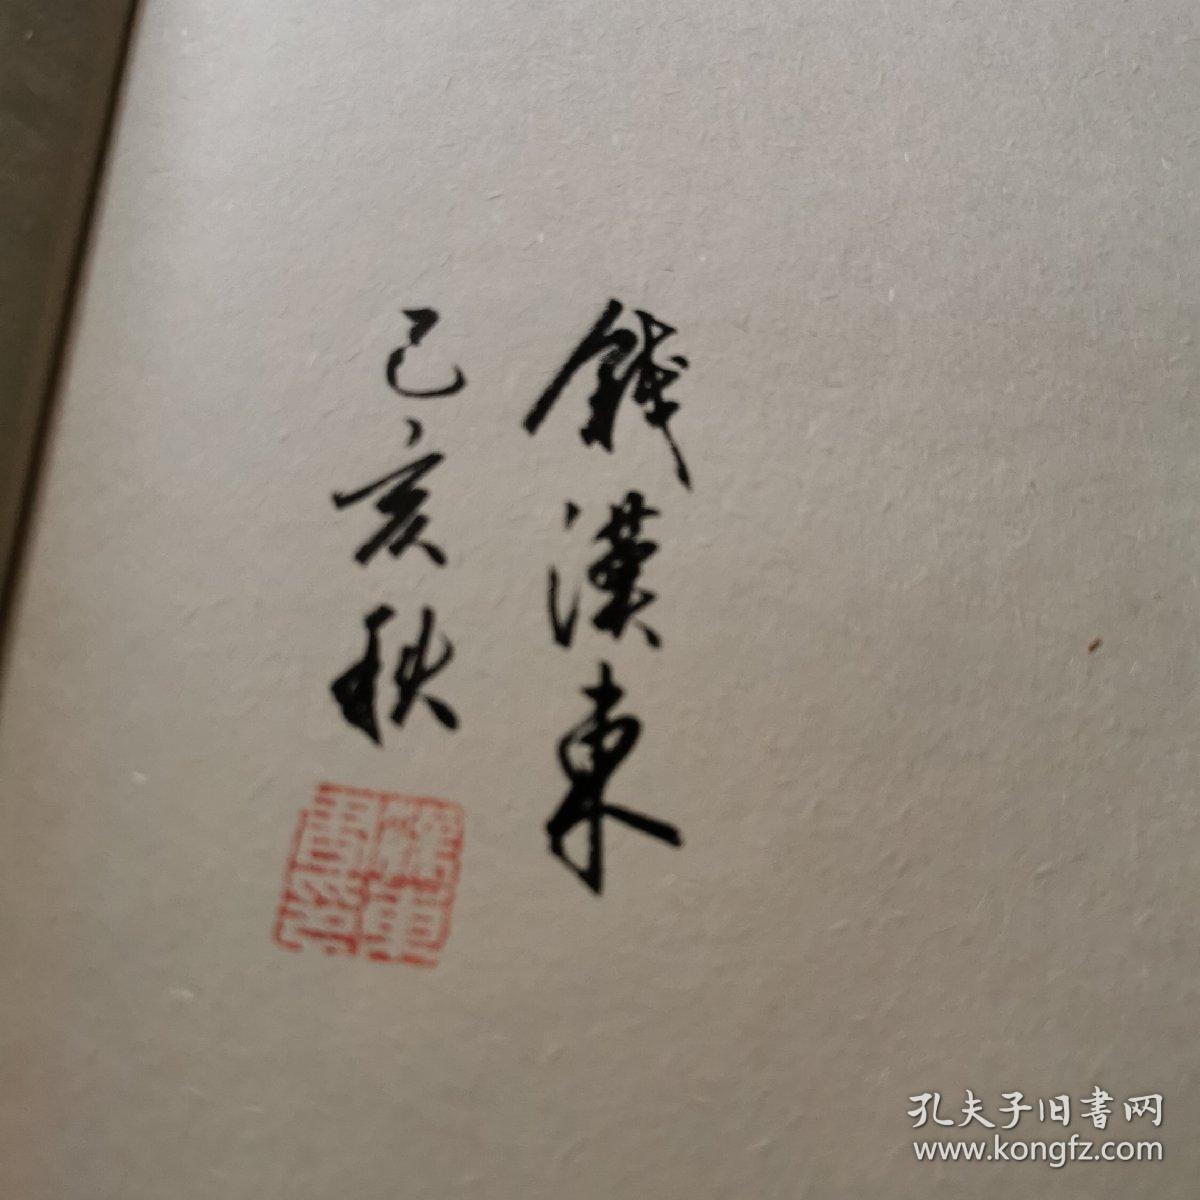 錢漢東
己亥秋
孔夫子旧書网
www.kongfz.com